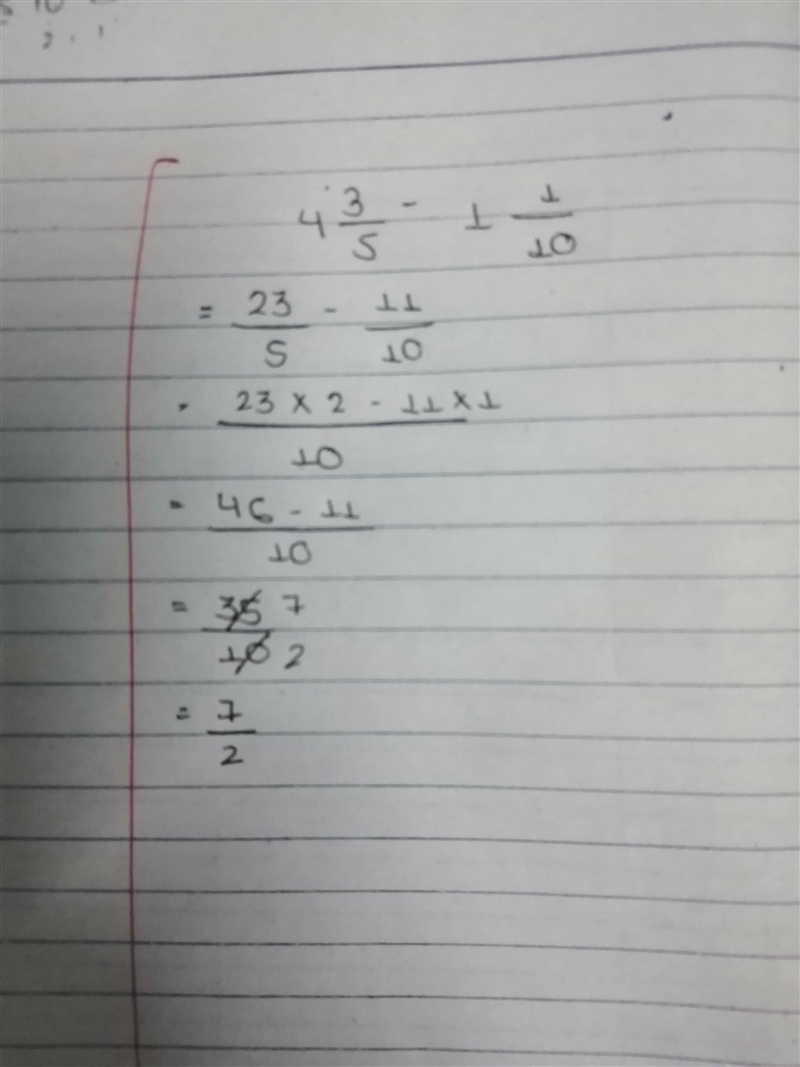 4 3/5 - 1 1/10
= 23/5 - 11/10
= 23 × 2 - 11 × 1 / 10
= 46 - 11 / 10
= 35 7 / 10 2
= 7/2